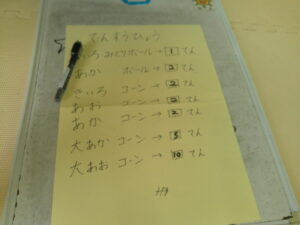 てんすうひょう
きいろ みどりボール→1てん
あか ボール→2てん
きいろ コーン→2てん
あお コーン→2てん
あか コーン→2てん
大あか コーン→5てん
大あお コーン→10てん